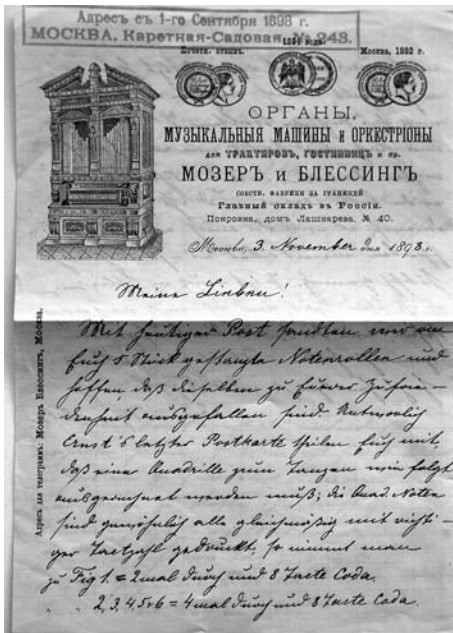 Адресъ съ 1-го Сентября 1893 г.
МОСКВА, Каретная-Садовая, № 243.
Почетн. отзывъ.
Москва, 1882 г.
ОРГАНЫ,
МУЗЫКАЛЬНЫЯ МАШИНЫ и ОРКЕСТРІОНЫ
для ТРАКТИРОВЪ, ГОСТИННИЦЪ и пр.
МОЗЕРЪ и БЛЕССИНГЪ
СОБСТВ. ФАБРИКИ ЗА ГРАНИЦЕЙ
Главный складъ въ Россіи.
Покровка, домъ Лашкарева. № 40.
Москва, 3. November дня 1893 г.
Meine Lieben!
Mit heutiger Post sandten wir an
Euch 5 Stück gestanzte Notenrollen und
hoffen, daß dieselben zu Eurer Zufrie-
denheit ausgefallen sind. Antwortlich
Ernst's letzter Postkarte theilen Euch mit,
daß eine Quadrille zum Tanzen wie folgt
ausgezeichnet werden muß; die Quad. Noten
sind gewöhnlich alle gleichmäßig mit richti-
ger Tactzahl gedruckt, so nimmt man
zu Fig 1. = 2mal durch und 8 Tacte Coda.
" " 2,3,4,5 & 6 = 4mal durch und 8 Tacte Coda.
Адресъ для телеграммъ: Мозеръ Блессингъ, Москва.